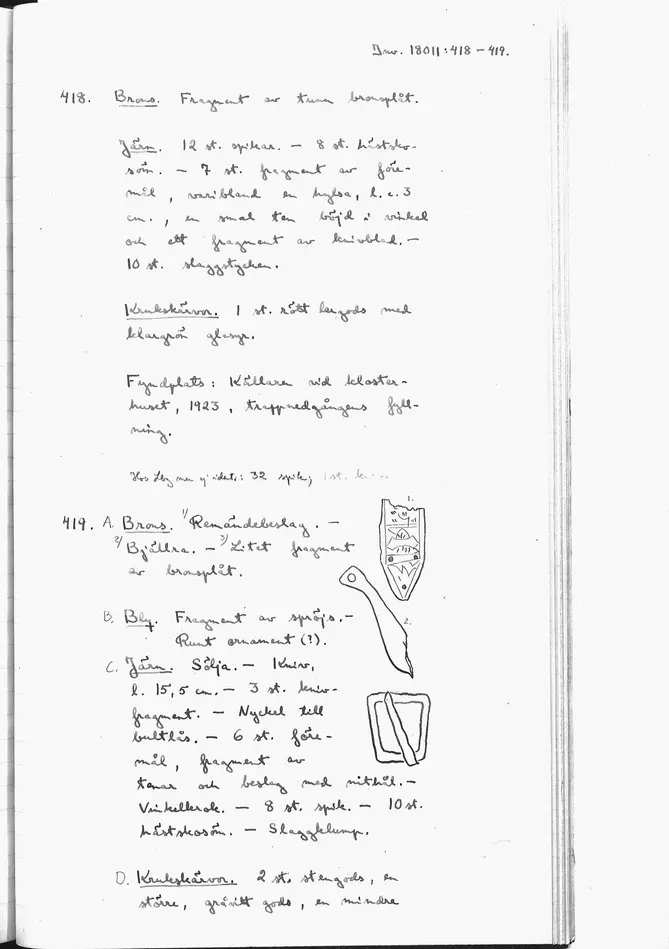 Inv. 18011:418 – 419.
418. Brons. Fragment av tunn bronsplåt.
Järn. 12 st. spikar. – 8 st. hästsko-
söm. – 7 st. fragment av före-
mål, varibland en hylsa, l. c. 3
cm., en smal ten böjd i vinkel
och ett fragment av knivblad. –
10 st. slaggstycken.
Krukskärvor. 1 st. rött lergods med
klargrön glasyr.
Fyndplats: Källaren vid kloster-
huset, 1923, trappnedgångens fyll-
ning.
Hos Lbg men ej ident.: 32 spik; 1 st.
1.
419. A. Brons. 1/ Remändebeslag. –
2/ Bjällra. – 3/ Litet fragment
av bronsplåt.
B. Bly. Fragment av spröjs. –
2.
Runt ornament (?).
C. Järn. Sölja. – Kniv,
l. 15,5 cm. – 3 st. kniv-
fragment. – Nyckel till
bultlås. – 6 st. före-
mål, fragment av
tenar och beslag med nithål. –
Vinkelkrok. – 8 st. spik. – 10 st.
hästskosöm. – Slaggklump.
D. Krukskärvor. 2 st. stengods, en
större, gråvitt gods, en mindre